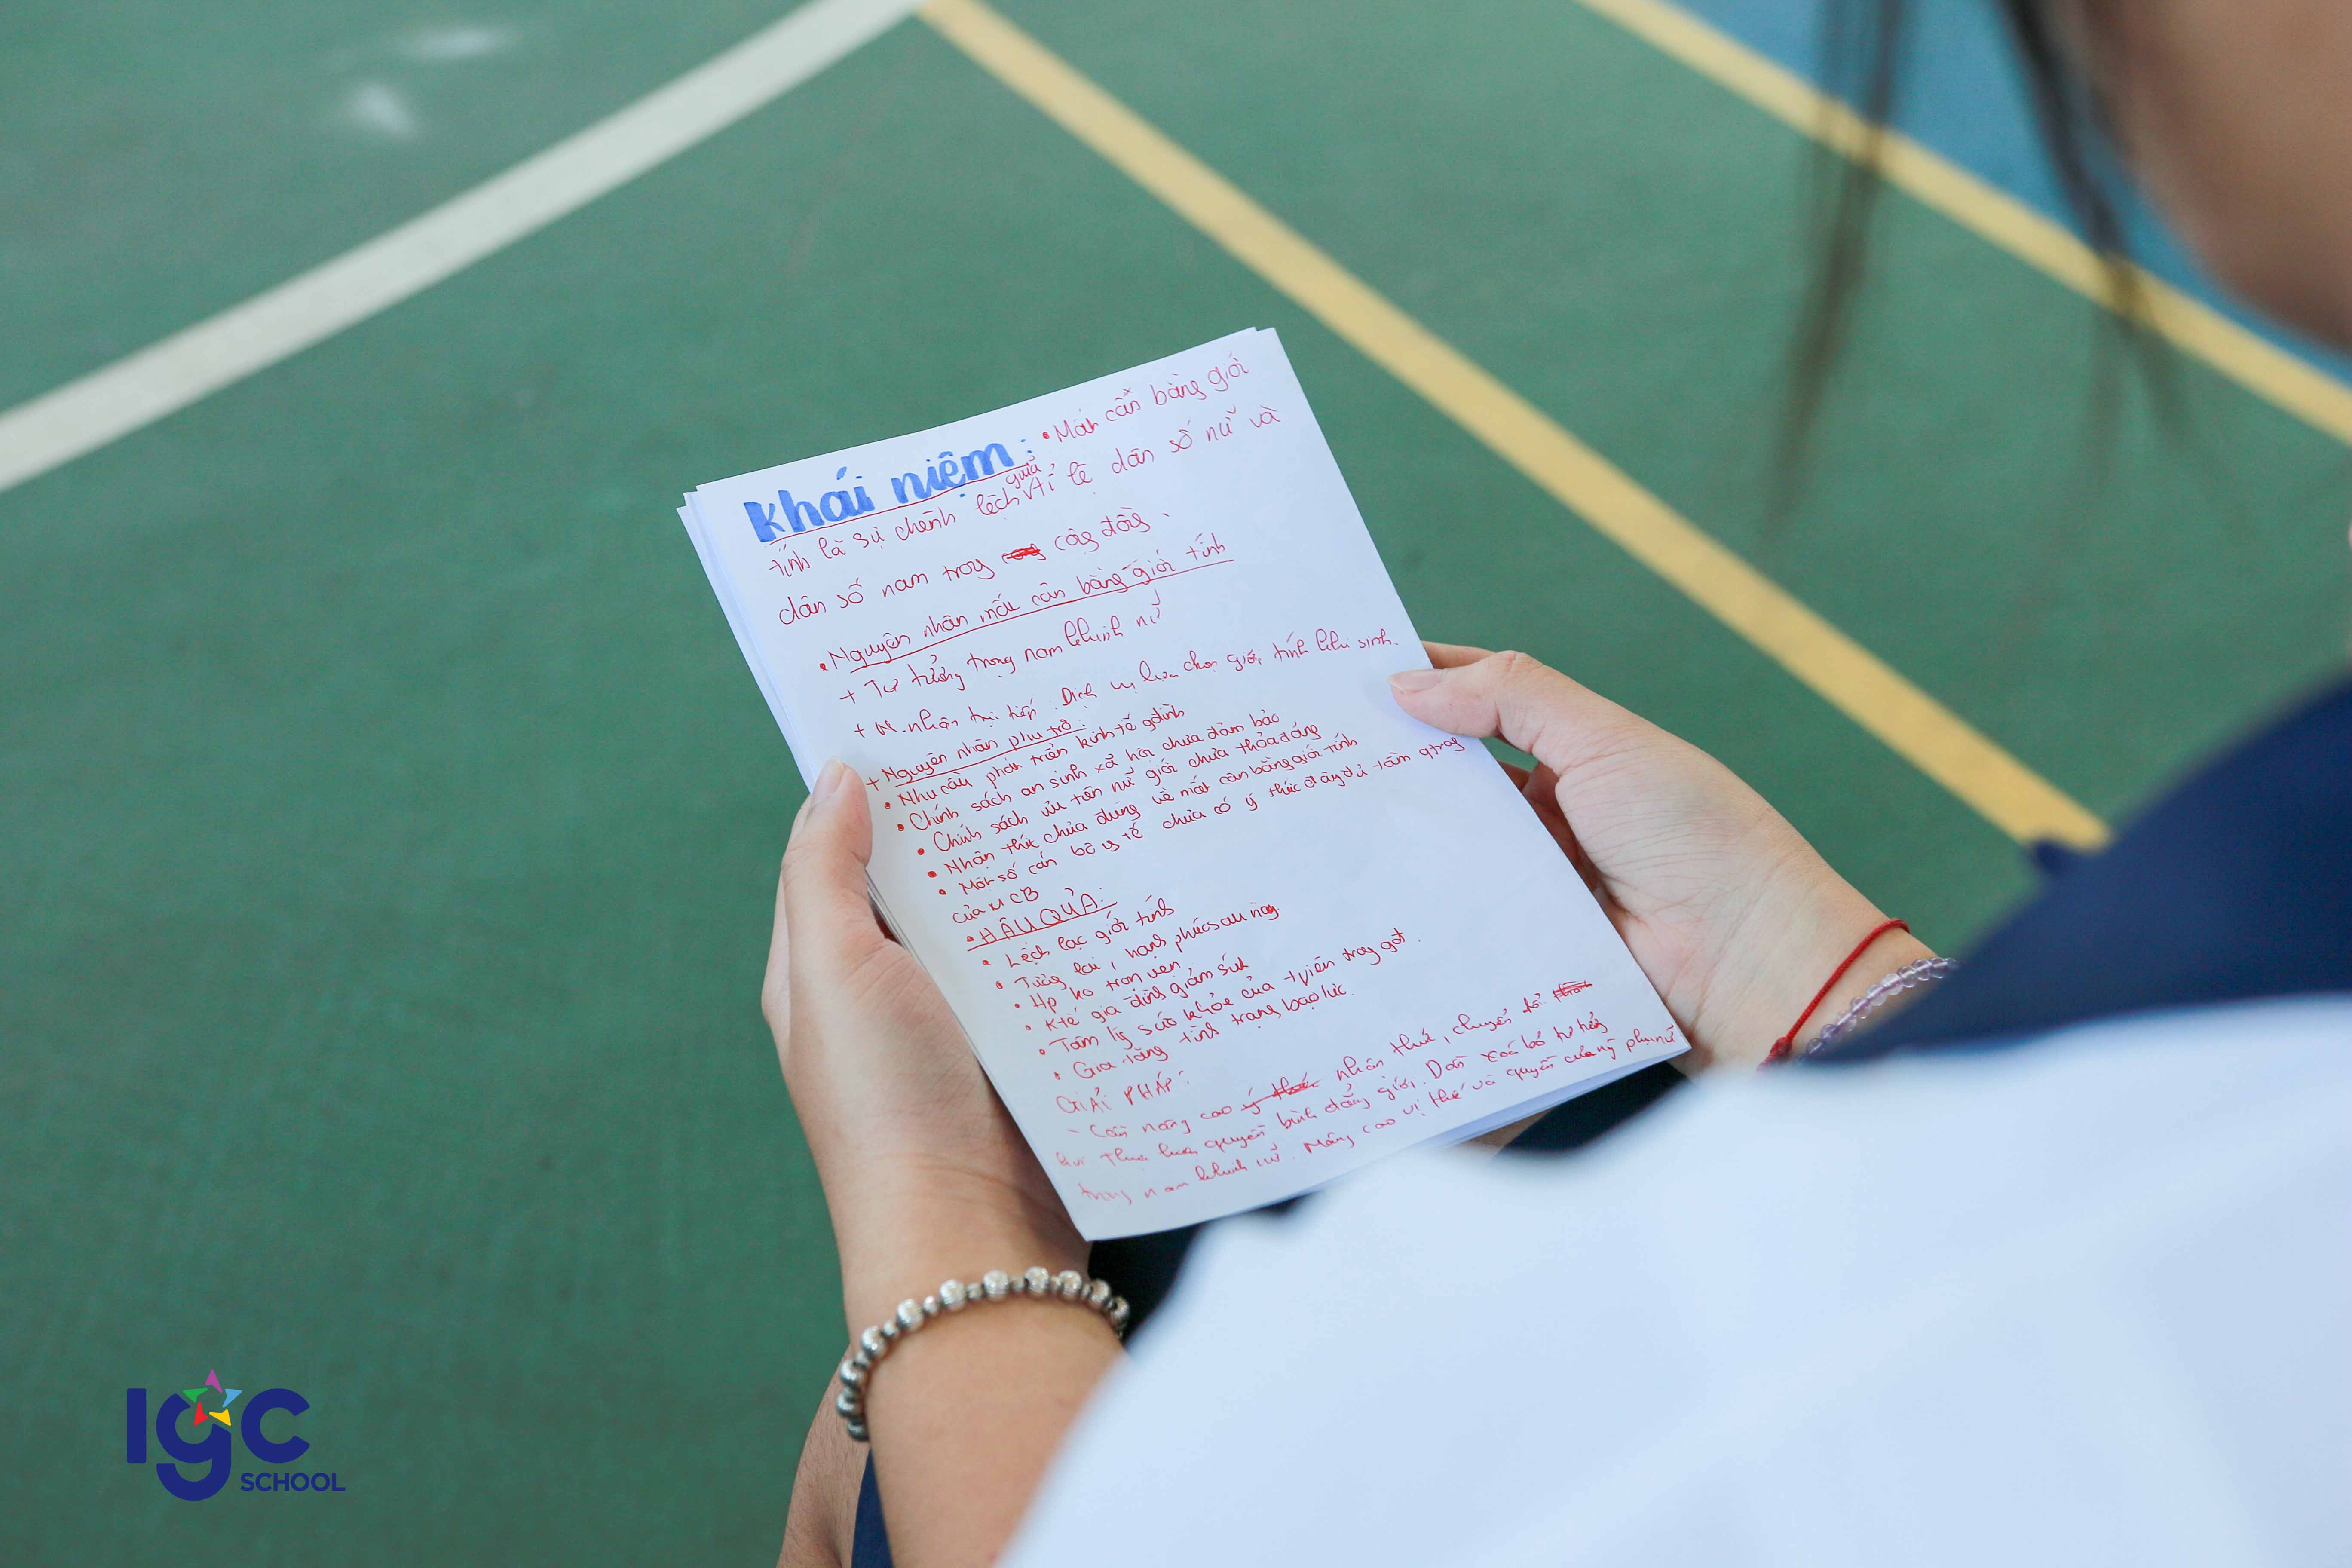 Khái niệm: • Mất cân bằng giới
tính là sự chênh lệch giữa tỉ lệ dân số nữ và
dân số nam trong cộng đồng.
• Nguyên nhân mất cân bằng giới tính
+ Tư tưởng trọng nam khinh nữ
+ N.nhân trực tiếp: Dịch vụ lựa chọn giới tính khi sinh.
+ Nguyên nhân phụ trợ:
• Nhu cầu phát triển kinh tế gđình
• Chính sách an sinh xã hội chưa đảm bảo
• Chính sách ưu tiên nữ giới chưa thỏa đáng
• Nhận thức chưa đúng về mất cân bằng giới tính
• Một số cán bộ y tế chưa có ý thức đầy đủ tầm qtrọng
của MCB
• HẬU QUẢ:
• Lệch lạc giới tính
• Tương lai, hạnh phúc sau này
• Hp ko trọn vẹn
• Ktế gia đình giảm sút
• Tâm lý, sức khỏe của tviên trong gđ.
• Gia tăng tình trạng bạo lực.
GIẢI PHÁP:
- Cần nâng cao ý thức nhận thức, chuyển đổi
hành vi quyền bình đẳng giới. Dần xoá bỏ tư tưởng
trọng nam khinh nữ. Nâng cao vị thế và quyền của ng phụ nữ
IGC
SCHOOL